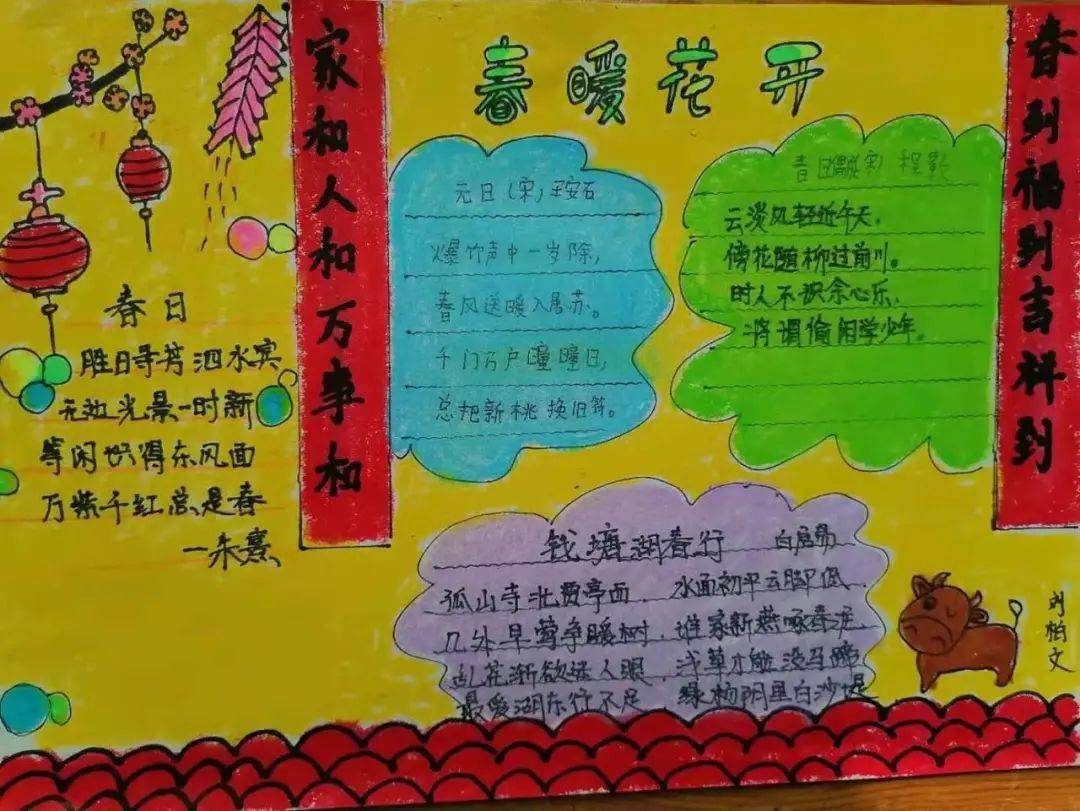 春暖花开
家和人和万事和
春到福到吉祥到
春日
胜日寻芳泗水宾
无边光景一时新
等闲识得东风面
万紫千红总是春
—朱熹
元日(宋)王安石
爆竹声中一岁除,
春风送暖入屠苏。
千门万户曈曈日,
总把新桃换旧符。
春日偶成(宋)程颢
云淡风轻近午天,
傍花随柳过前川。
时人不识余心乐,
将谓偷闲学少年。
钱塘湖春行 白居易
孤山寺北贾亭面 水面初平云脚低
几处早莺争暖树,谁家新燕啄春泥
乱花渐欲迷人眼,浅草才能没马蹄
最爱湖东行不足 绿杨阴里白沙堤
刘柏文